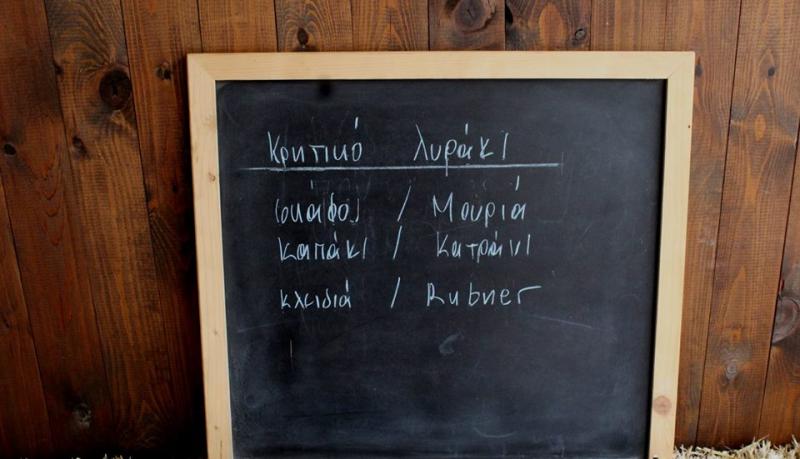 Κρητικό λυράκι
σκάφος / Μουριά
καπάκι / Κατράνι
κλειδιά / Rubner